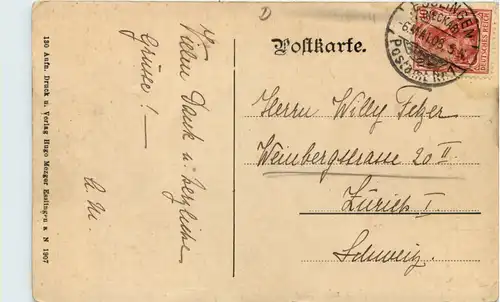 D
Postkarte.
ESSLINGEN
(NECKAR)
6. MAI. 09. 5-
DEUTSCHES REICH
Vielen Dank u. herzliche
Grüsse! —
Herrn Willy Felzer
Weinbergstrasse 20 II
Zürich I.
Schweiz.
130 Aufn. Druck u. Verlag Hugo Menger Esslingen a N 1907